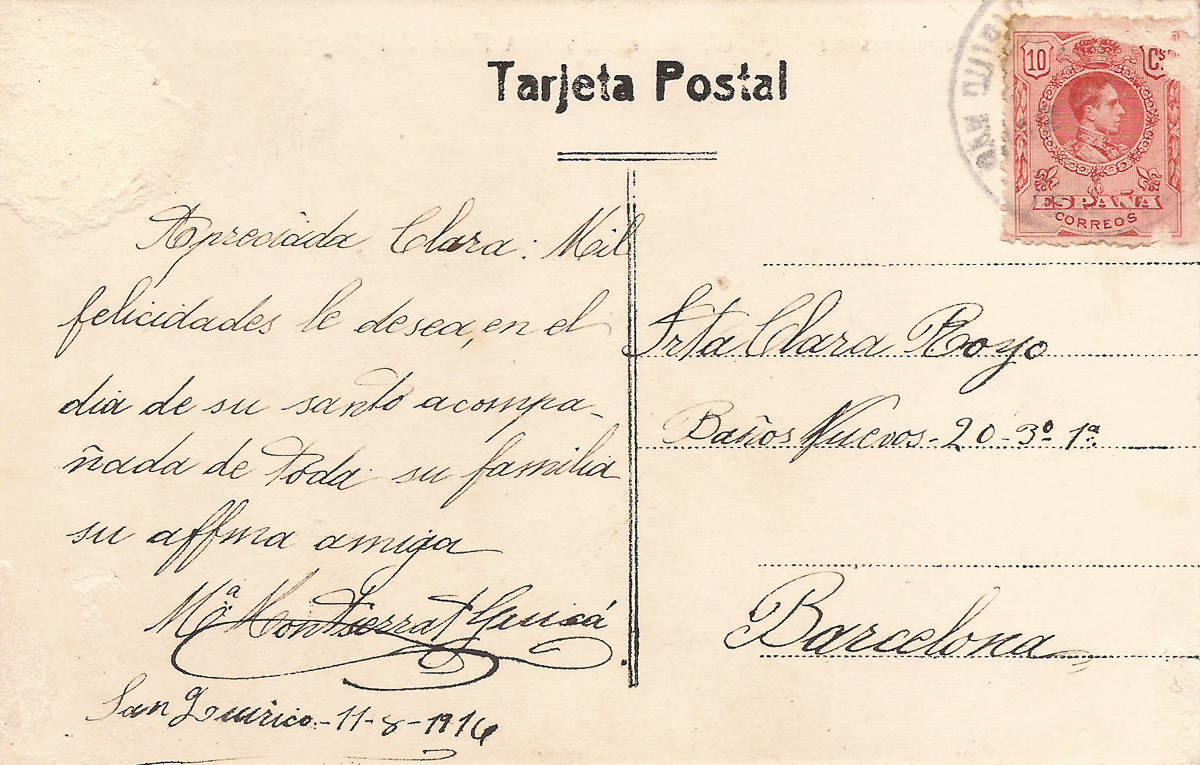 Tarjeta Postal
10 Cs.
ESPAÑA
CORREOS
SAN QUIRIC
Apreciada Clara: Mil
felicidades le desea, en el
dia de su santo acompa-
ñada de toda su familia
su affma amiga
Mª Montserrat
San Quirico - 11-8-1916
Srta Clara Royo
Baños Nuevos - 20 - 3º 1ª
Barcelona